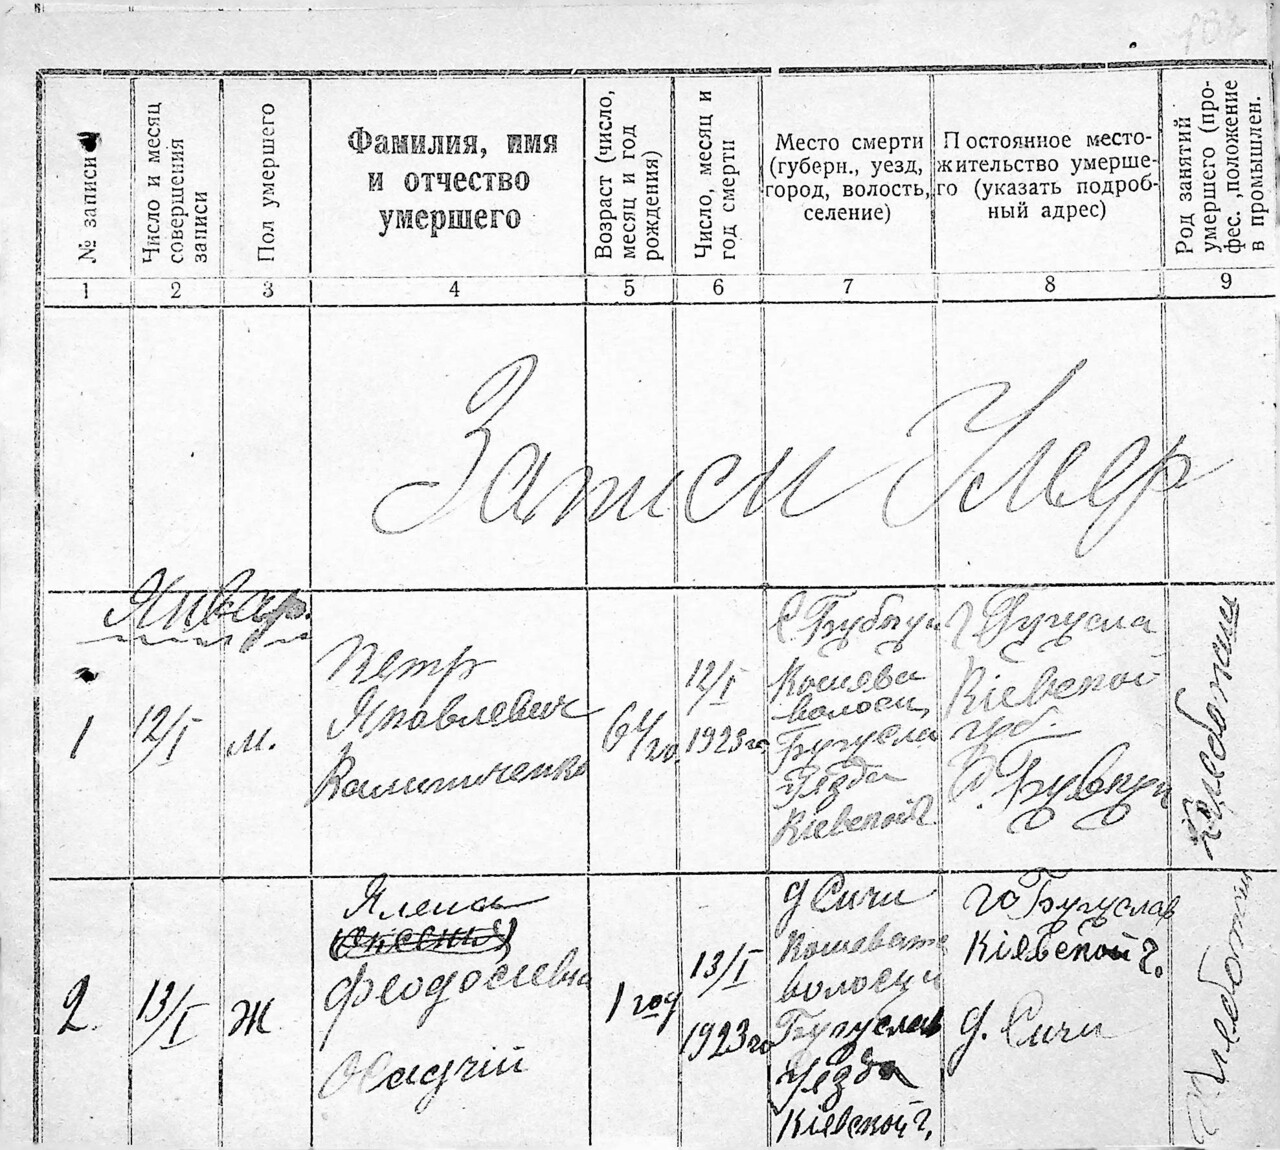 № записи
Число и месяц
совершения
записи
Пол умершего
Фамилия, имя
и отчество
умершего
Возраст (число,
месяц и год
рождения)
Число, месяц и
год смерти
Место смерти
(губерн., уезд,
город, волость,
селение)
Постоянное место-
жительство умерше-
го (указать подроб-
ный адрес)
Род занятий
умершего (про-
фес. ,положение
в промышлен.
1 2 3 4 5 6 7 8 9
Записи Умер
Январ.
1
12/I
м.
Петр
Яковлевич
64
го.
12/I
1923 го
Кошева
волости
Бугусла
Уязда
Кіевской г
г Бугусла
Кіевской
губ.
2.
13/I
ж
Ялена
Феодосіевна
Осадчій
1 год
13/I
1923 го
д Сичи
Кошевата
волости
Бугуслав
Уязда
Кіевской г,
го Бугуслав
Кіявской г.
д. Сичи